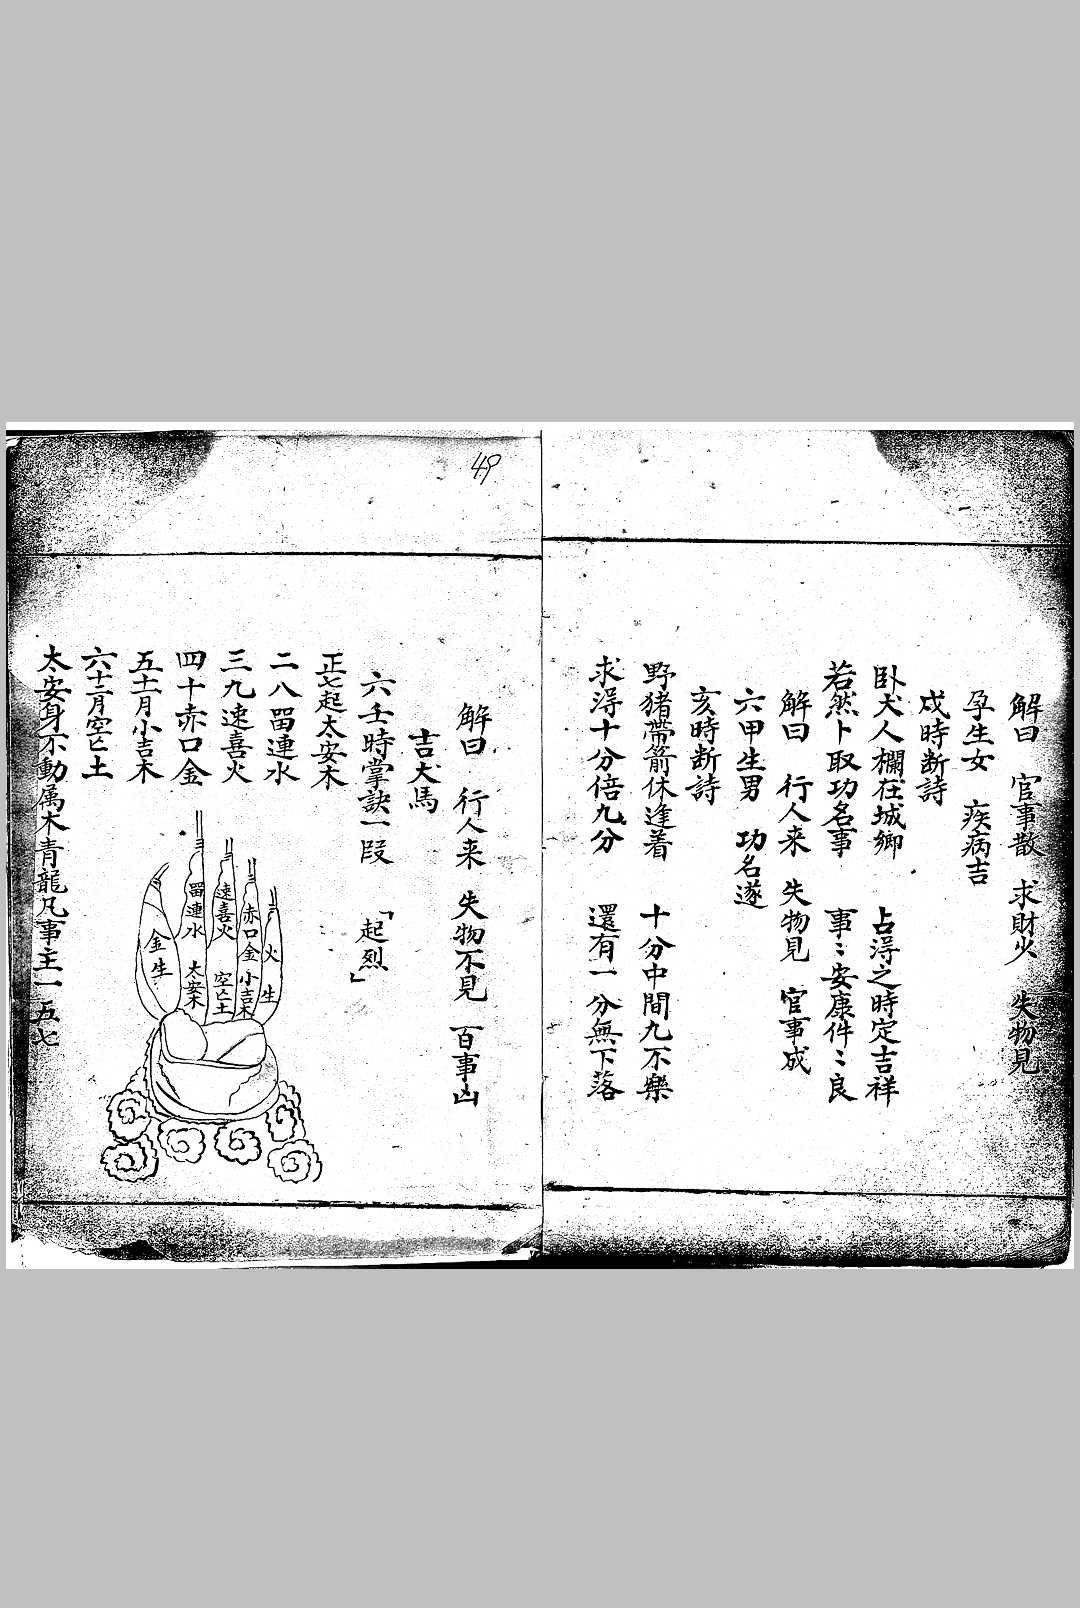 解曰 官事散 求財少 失物見
孕生女 疾病吉
戍時断詩
卧犬人欄在城鄉 占淂之時定吉祥
若然卜取功名事 事〻安康件〻良
解曰 行人来 失物見 官事成
六甲生男 功名遂
亥時断詩
野猪帶箭休逢着 十分中間九不樂
求淂十分倍九分 還有一分無下落
49
解曰 行人来 失物不見 百事凶
吉犬馬
六壬時掌訣一段 「起烈」
正七起太安木
二八畱連水
三九速喜火
四十赤口金
五十一月小吉木
六十二月空亡土
太安身不動属木青龍凡事主一五七
火 生
赤口金 小吉木
速喜火 空亡土
畱連水 太安木
金生